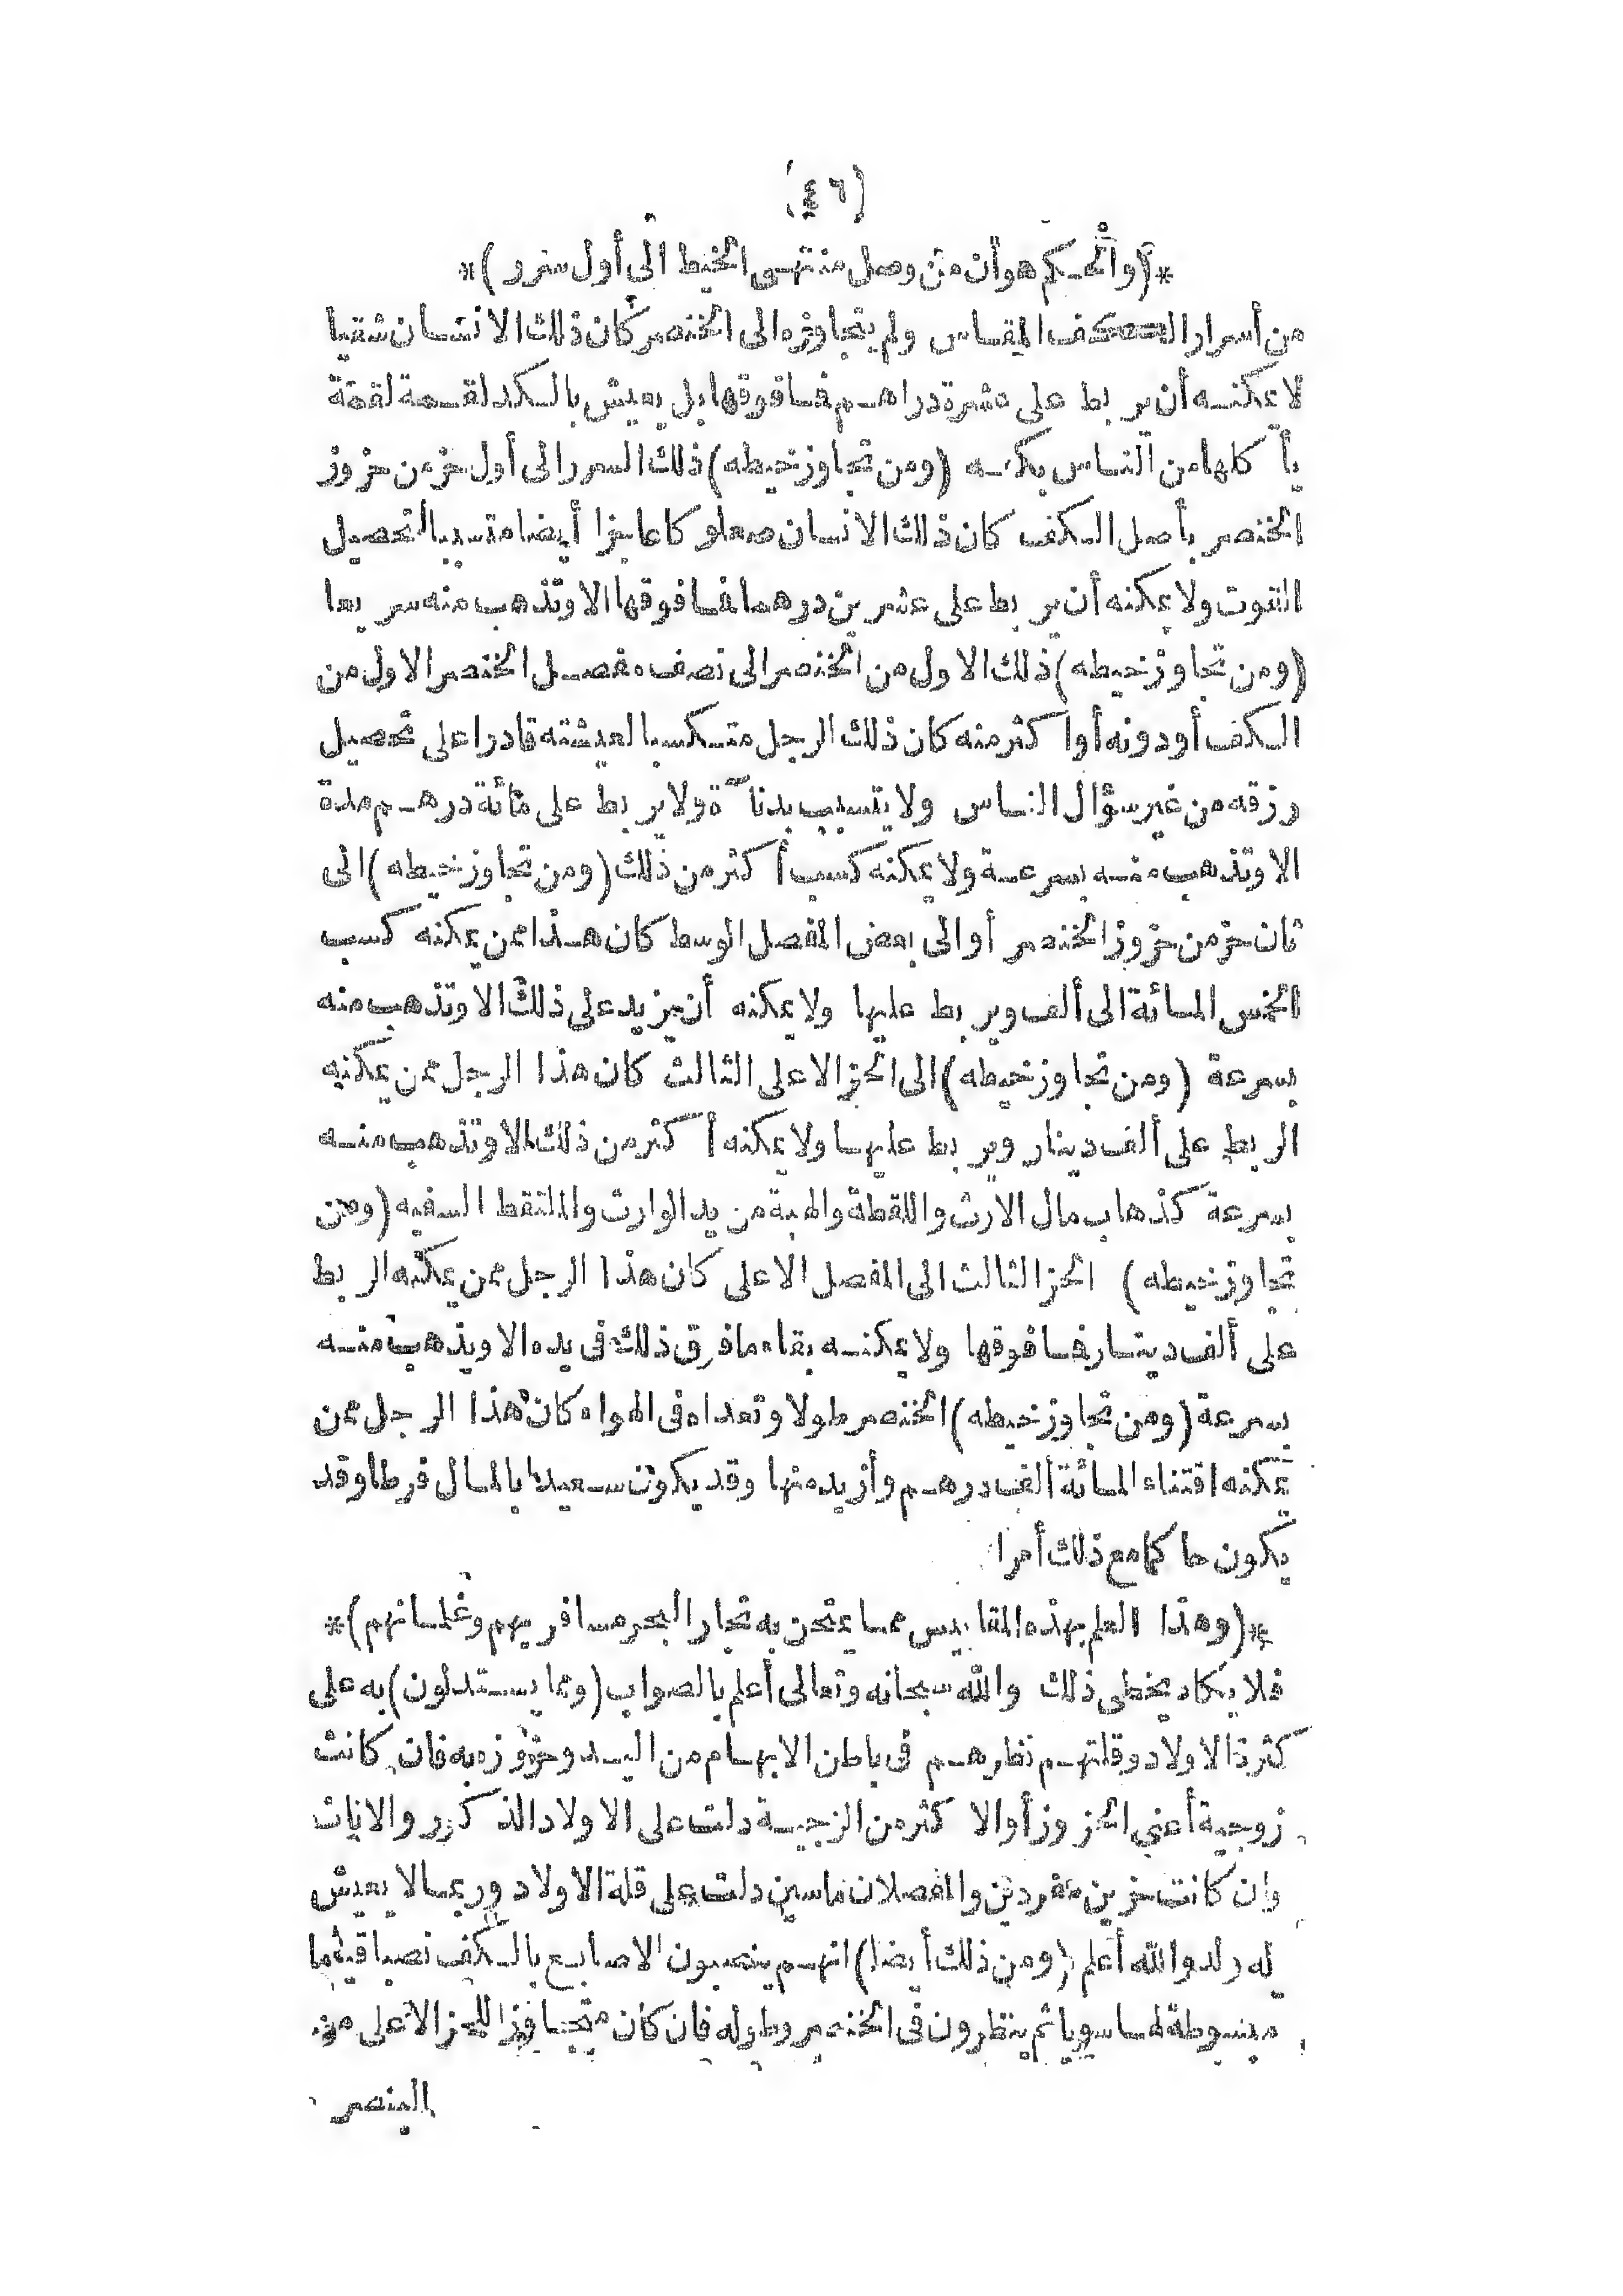 (٤٦)
*(والحكم هو أن من وصل منتهى الخيط الى أول سرر)*
من أسرار الكف المقاس ولم يتجاوزه الى الخنصر كان ذلك الانسان شقيا
لا يمكنه أن يربط على عشرة دراهم فما فوقها بل يعيش بالكد لقمة لقمة
يأكلها من الناس بكده (ومن تجاوز خيطه) ذلك السرر الى أول حز من حزوز
الخنصر بأصل الكف كان ذلك الانسان صعلوكا عاجزا أيضا متسببا لتحصيل
القوت ولا يمكنه أن يربط على عشرين درهما فما فوقها الا وتذهب منه سريعا
(ومن تجاوز خيطه) ذلك الاول من الخنصر الى نصف مفصل الخنصر الاول من
الكف أو دونه أو أكثر منه كان ذلك الرجل متكسبا لعيشته قادرا على تحصيل
رزقه من غير سؤال الناس ولا يتسبب بدناءة ولا يربط على مائة درهم مدة
الا وتذهب منه بسرعة ولا يمكنه كسب أكثر من ذلك (ومن تجاوز خيطه) الى
ثان حز من حزوز الخنصر أو الى بعض المفصل الوسط كان هذا ممن يمكنه كسب
الخمس المائة الى ألف ويربط عليها ولا يمكنه أن يزيد على ذلك الا وتذهب منه
بسرعة (ومن تجاوز خيطه) الى الحز الاعلى الثالث كان هذا الرجل ممن يمكنه
الربط على ألف دينار ويربط عليها ولا يمكنه أكثر من ذلك الا وتذهب منه
بسرعة كذهاب مال الارث واللقطة والهبة من يد الوارث والملتقط السفيه (ومن
تجاوز خيطه) الحز الثالث الى المفصل الاعلى كان هذا الرجل ممن يمكنه الربط
على ألف دينار فما فوقها ولا يمكنه بقاء ما فوق ذلك فى يده الا ويذهب منه
بسرعة (ومن تجاوز خيطه) الخنصر طولا وتعداه فى الهواء كان هذا الرجل ممن
يمكنه اقتناء المائة ألف درهم وأزيد منها وقد يكون سعيدا بالمال فرطا وقد
يكون حاكما مع ذلك أمرا
*(وهذا العلم بهذه المقاييس مما يمتحن به تجار البحر مسافريهم وغلمانهم)*
فلا يكاد يخطى ذلك والله سبحانه وتعالى أعلم بالصواب (ومما يستدلون) به على
كثرة الاولاد وقلتهم نظرهم فى باطن الابهام من اليد وحزوزه به فان كانت
زوجية أعنى الحزوز أوالا كثر من الزجية دلت على الاولاد الذكور والاناث
وان كانت حزين مفردين والمفصلان ماسين دلت على قلة الاولاد وربما لا يعيش
له ولد والله أعلم (ومن ذلك أيضا) انهم ينصبون الاصابع بالكف نصبا قيما
مبسوطة لها سويا ثم ينظرون فى الخنصر وطوله فان كان متجاوزا للحز الاعلى من
البنصر